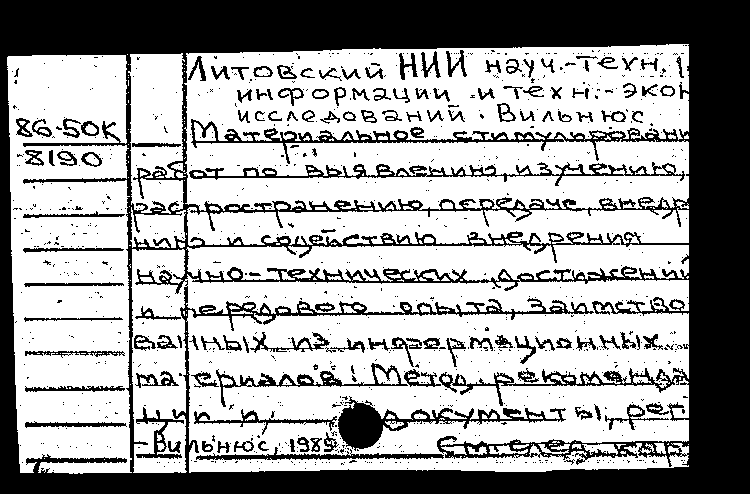 Литовский НИИ науч.-техн.
информации и техн.-экон
исследований. Вильнюс.
86-50К Материальное стимулировани
8190 работ по выявлению, изучению,
распространению, передаче, внедре
нию и содействию внедрения
научно-технических достижений
и передового опыта, заимство
ванных из информационных
материалов: Метод. рекоменда
ции и документы, рег
- Вильнюс, 1989 См. след. кар